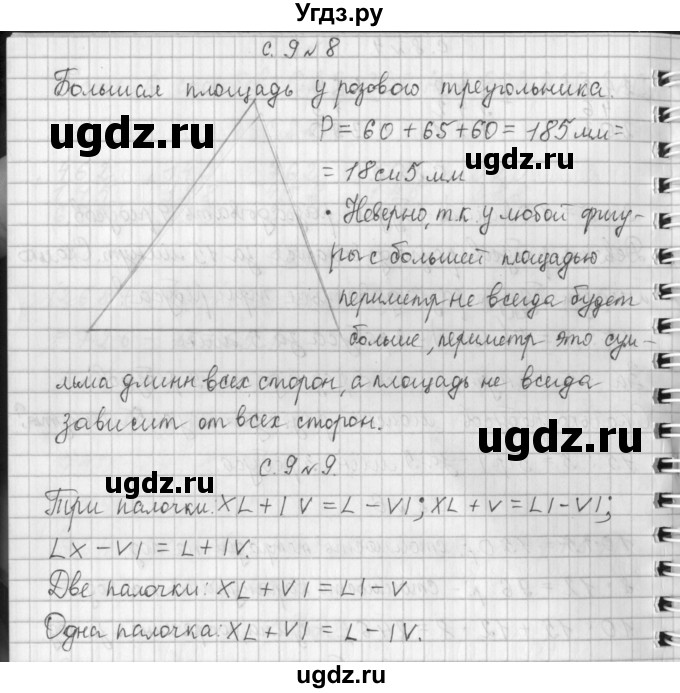 Угдз.ру
с. 9 № 8
Большая площадь у розового треугольника.
P = 60 + 65 + 60 = 185 мм =
= 18 см 5 мм
• Неверно, т.к. у любой фигу-
ры с большей площадью
периметр не всегда будет
больше, периметр это сум-
льма длинн всех сторон, а площадь не всегда
зависит от всех сторон.
с. 9 № 9.
Три палочки: XL + IV = L - VI; XL + V = LI - VI;
LX - VI = L + IV.
Две палочки: XL + VI = LI - V
Одна палочка: XL + VI = L - IV.
ugdz.ru
ugdz.ru
ugdz.ru
ugdz.ru
ugdz.ru
ugdz.ru
ugdz.ru